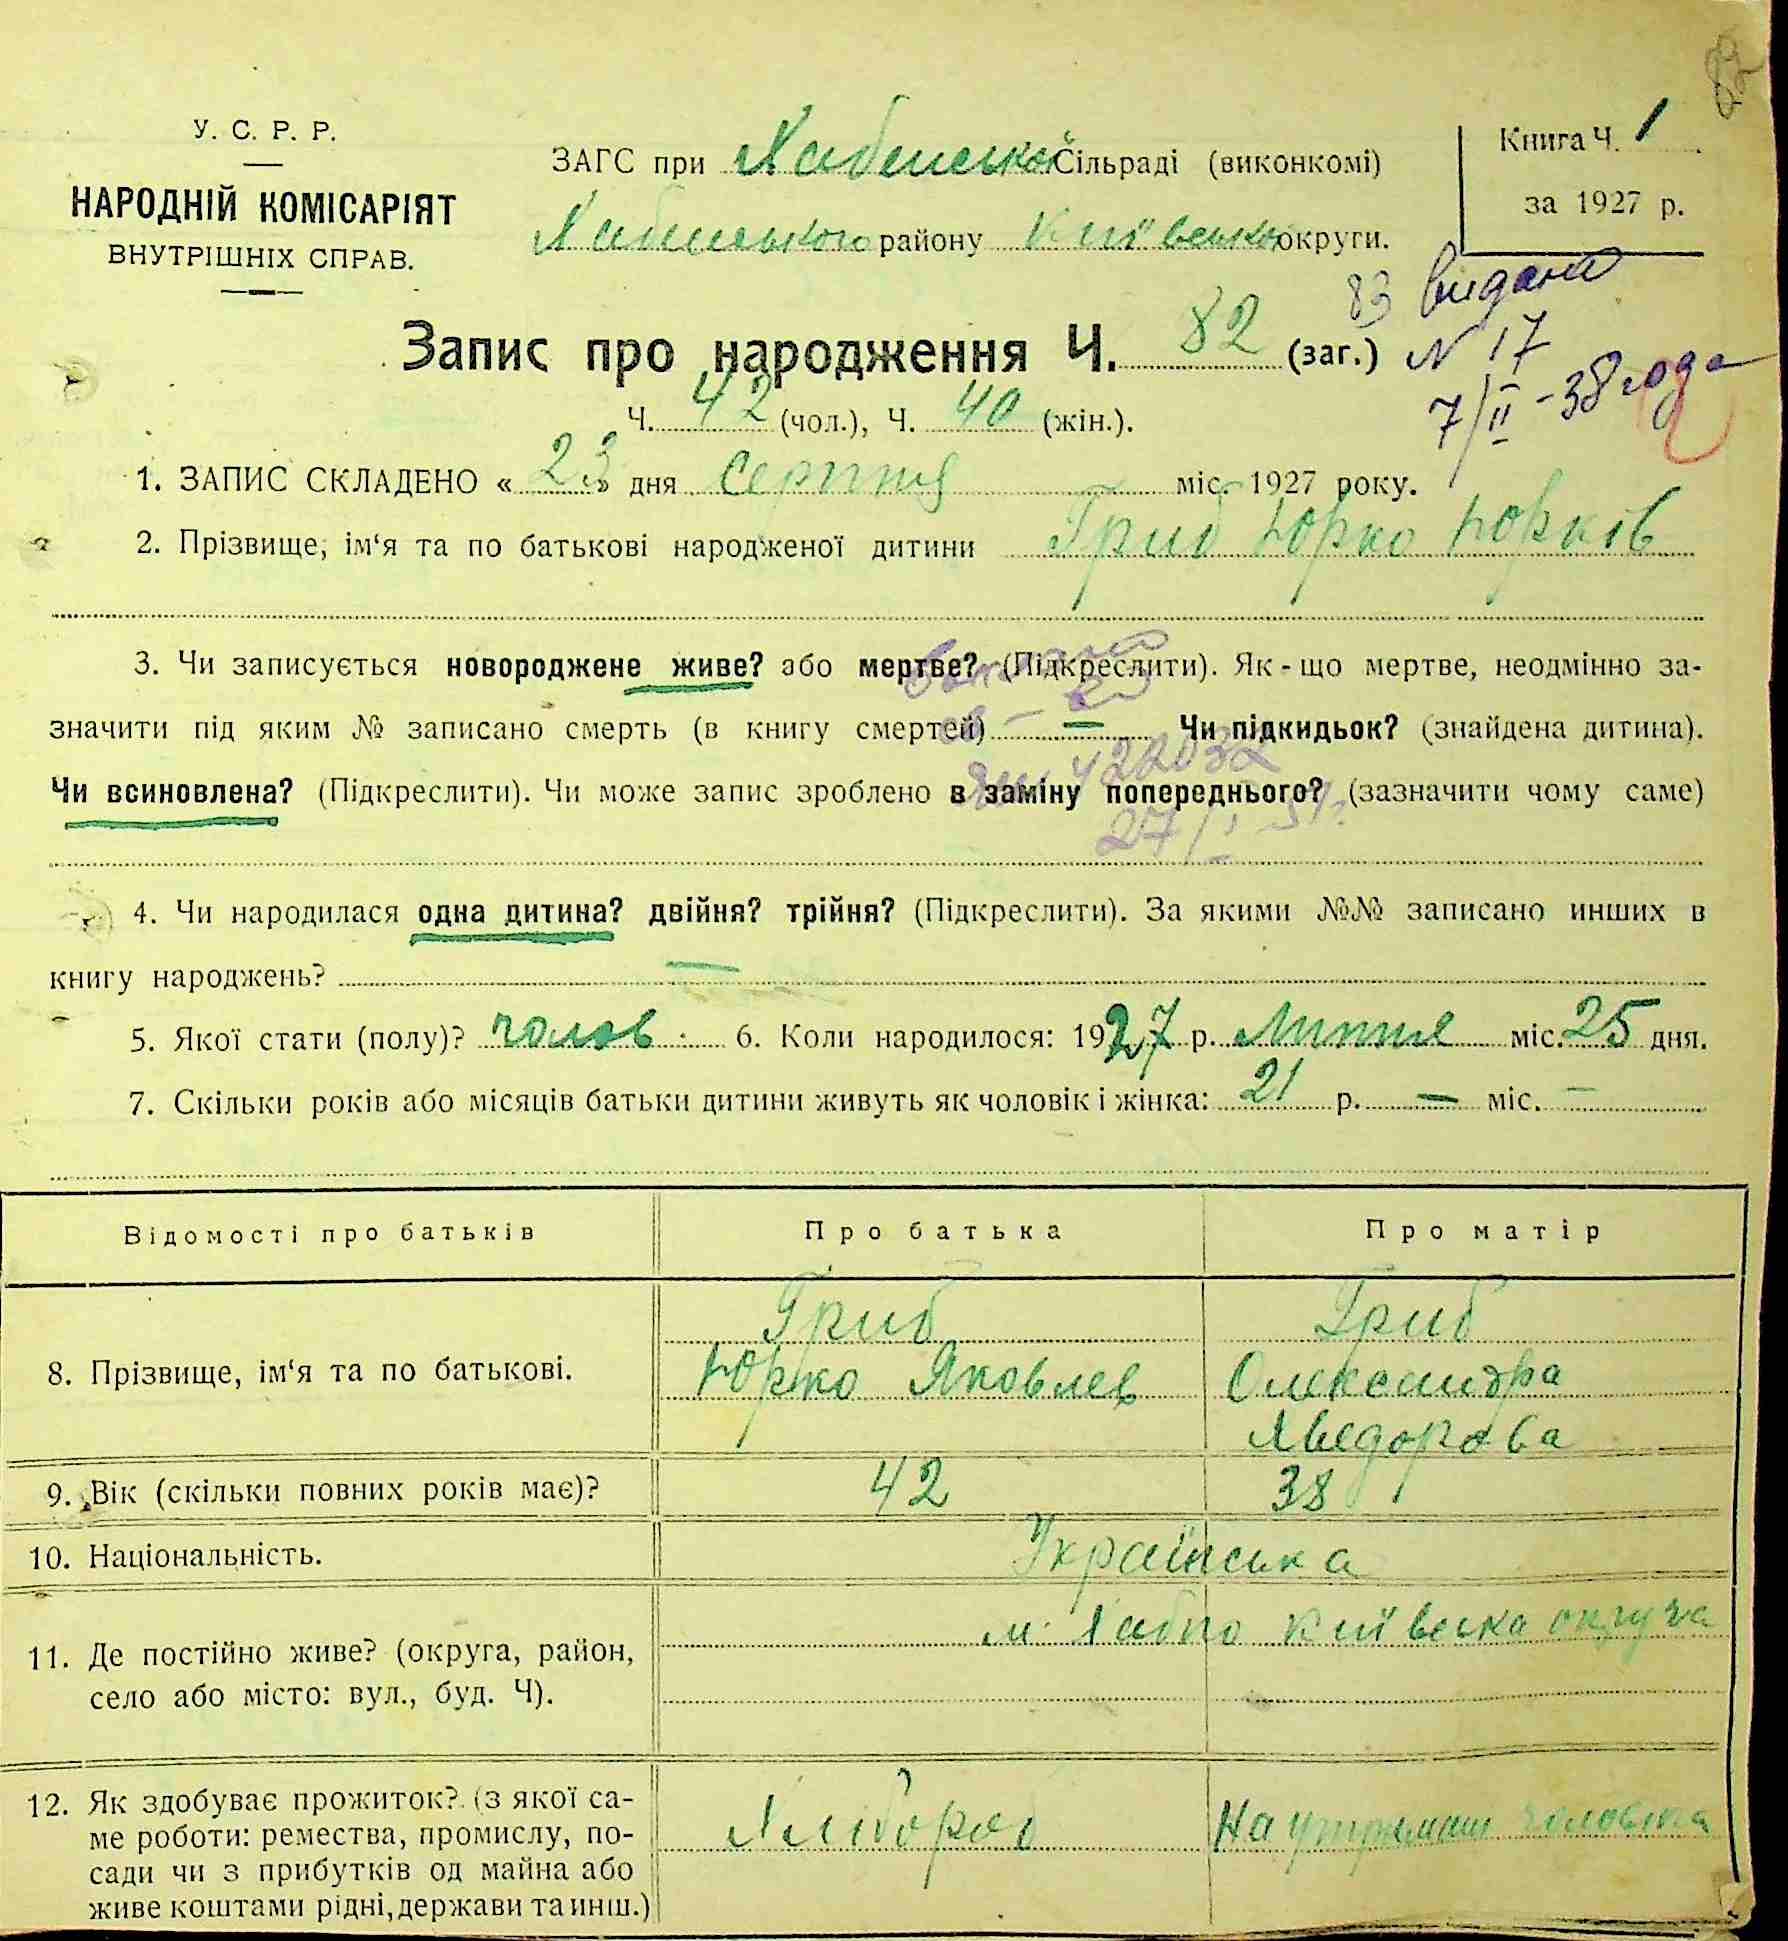 82
У. С. Р. Р.
НАРОДНІЙ КОМІСАРІЯТ
ВНУТРІШНІХ СПРАВ.
ЗАГС при Хабенській Сільраді (виконкомі)
Хабенського району Київської округи.
Книга Ч. 1
за 1927 р.
Запис про народження Ч. 82 (заг.)
83 видано
N 17
7/II-38 года
Ч. 42 (чол.), Ч. 40 (жін.).
1. ЗАПИС СКЛАДЕНО « 23 » дня Серпня міс. 1927 року.
2. Прізвище, ім‘я та по батькові народженої дитини Гриб Юрко Юрків
3. Чи записується новороджене живе? або мертве? (Підкреслити). Як-що мертве, неодмінно за-
значити під яким № записано смерть (в книгу смертей) — Чи підкидьок? (знайдена дитина).
Чи всиновлена? (Підкреслити). Чи може запис зроблено в заміну попереднього? (зазначити чому саме)
4. Чи народилася одна дитина? двійня? трійня? (Підкреслити). За якими №№ записано инших в
книгу народжень? —
5. Якої стати (полу)? чолов. 6. Коли народилося: 1927 р. Липня міс. 25 дня.
7. Скільки років або місяців батьки дитини живуть як чоловік і жінка: 21 р. — міс. —
Відомості про батьків Про батька Про матір
8. Прізвище, ім‘я та по батькові.
Гриб
Юрко Яковлев
Гриб
Олександра
Хведорова
9. Вік (скільки повних років має)? 42 38
10. Національність. Українська
11. Де постійно живе? (округа, район,
село або місто: вул., буд. Ч).
м. Хабно Київська округа
12. Як здобуває прожиток? (з якої са-
ме роботи: ремества, промислу, по-
сади чи з прибутків од майна або
живе коштами рідні, держави та инш.)
Хлібороб
На утриман чоловіка